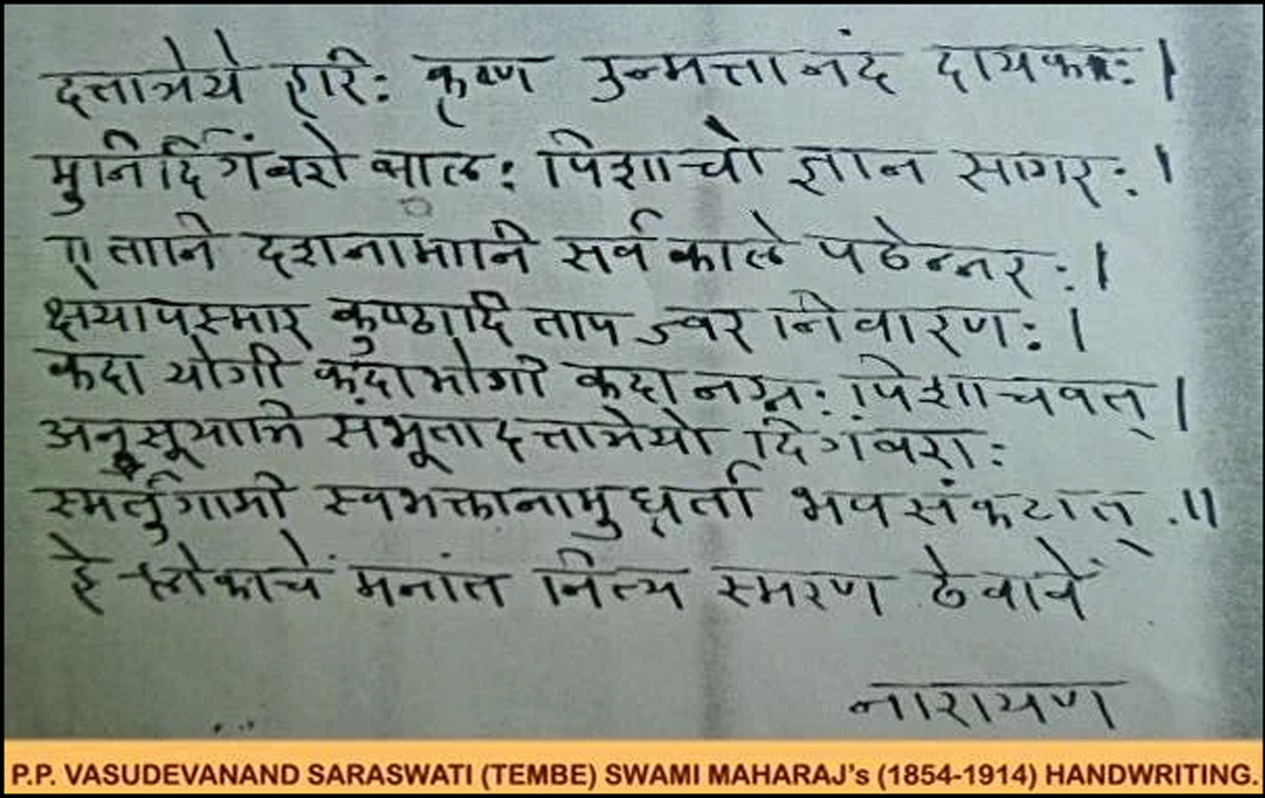 दत्तात्रेये हरिः कृष्ण उन्मत्तानंद दायकः |
मुनिर्दिगंबरो बालः पिशाचो ज्ञान सागरः |
ए तानि दशनामानि सर्व काले पठेन्नरः |
क्षयापस्मार कुष्ठादि ताप ज्वर निवारणः |
कदा योगी कदा भोगी कदा नग्नः पिशाचवत् |
अनुसूयात्रि संभूता दत्तात्रेयो दिगंबराः
स्मर्तुगामी स्वभक्तानामुध्दर्ता भवसंकटात् .॥
हे श्लोकाचें मनांत नित्य स्मरण ठेवावें
नारायण
P.P. VASUDEVANAND SARASWATI (TEMBE) SWAMI MAHARAJ's (1854-1914) HANDWRITING.